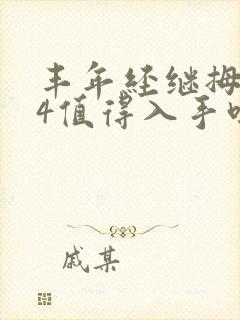 丰年经继拇
4值得入手吗
戚某